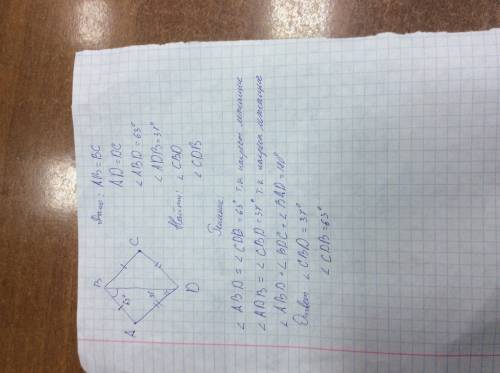 Дано: AB=BC
AD=DC
∠ABD=63°
∠ADB=37°
Найти: ∠CBD
∠CDB
B
C
A
D
63°
37°
Решение
∠ABD=∠CDB=63° т.к. накрест лежащие
∠ADB=∠CBD=37° т.к. накрест лежащие
∠ABD+∠BDC+∠BAD=180°
Ответ: ∠CBD=37°
∠CDB=63°